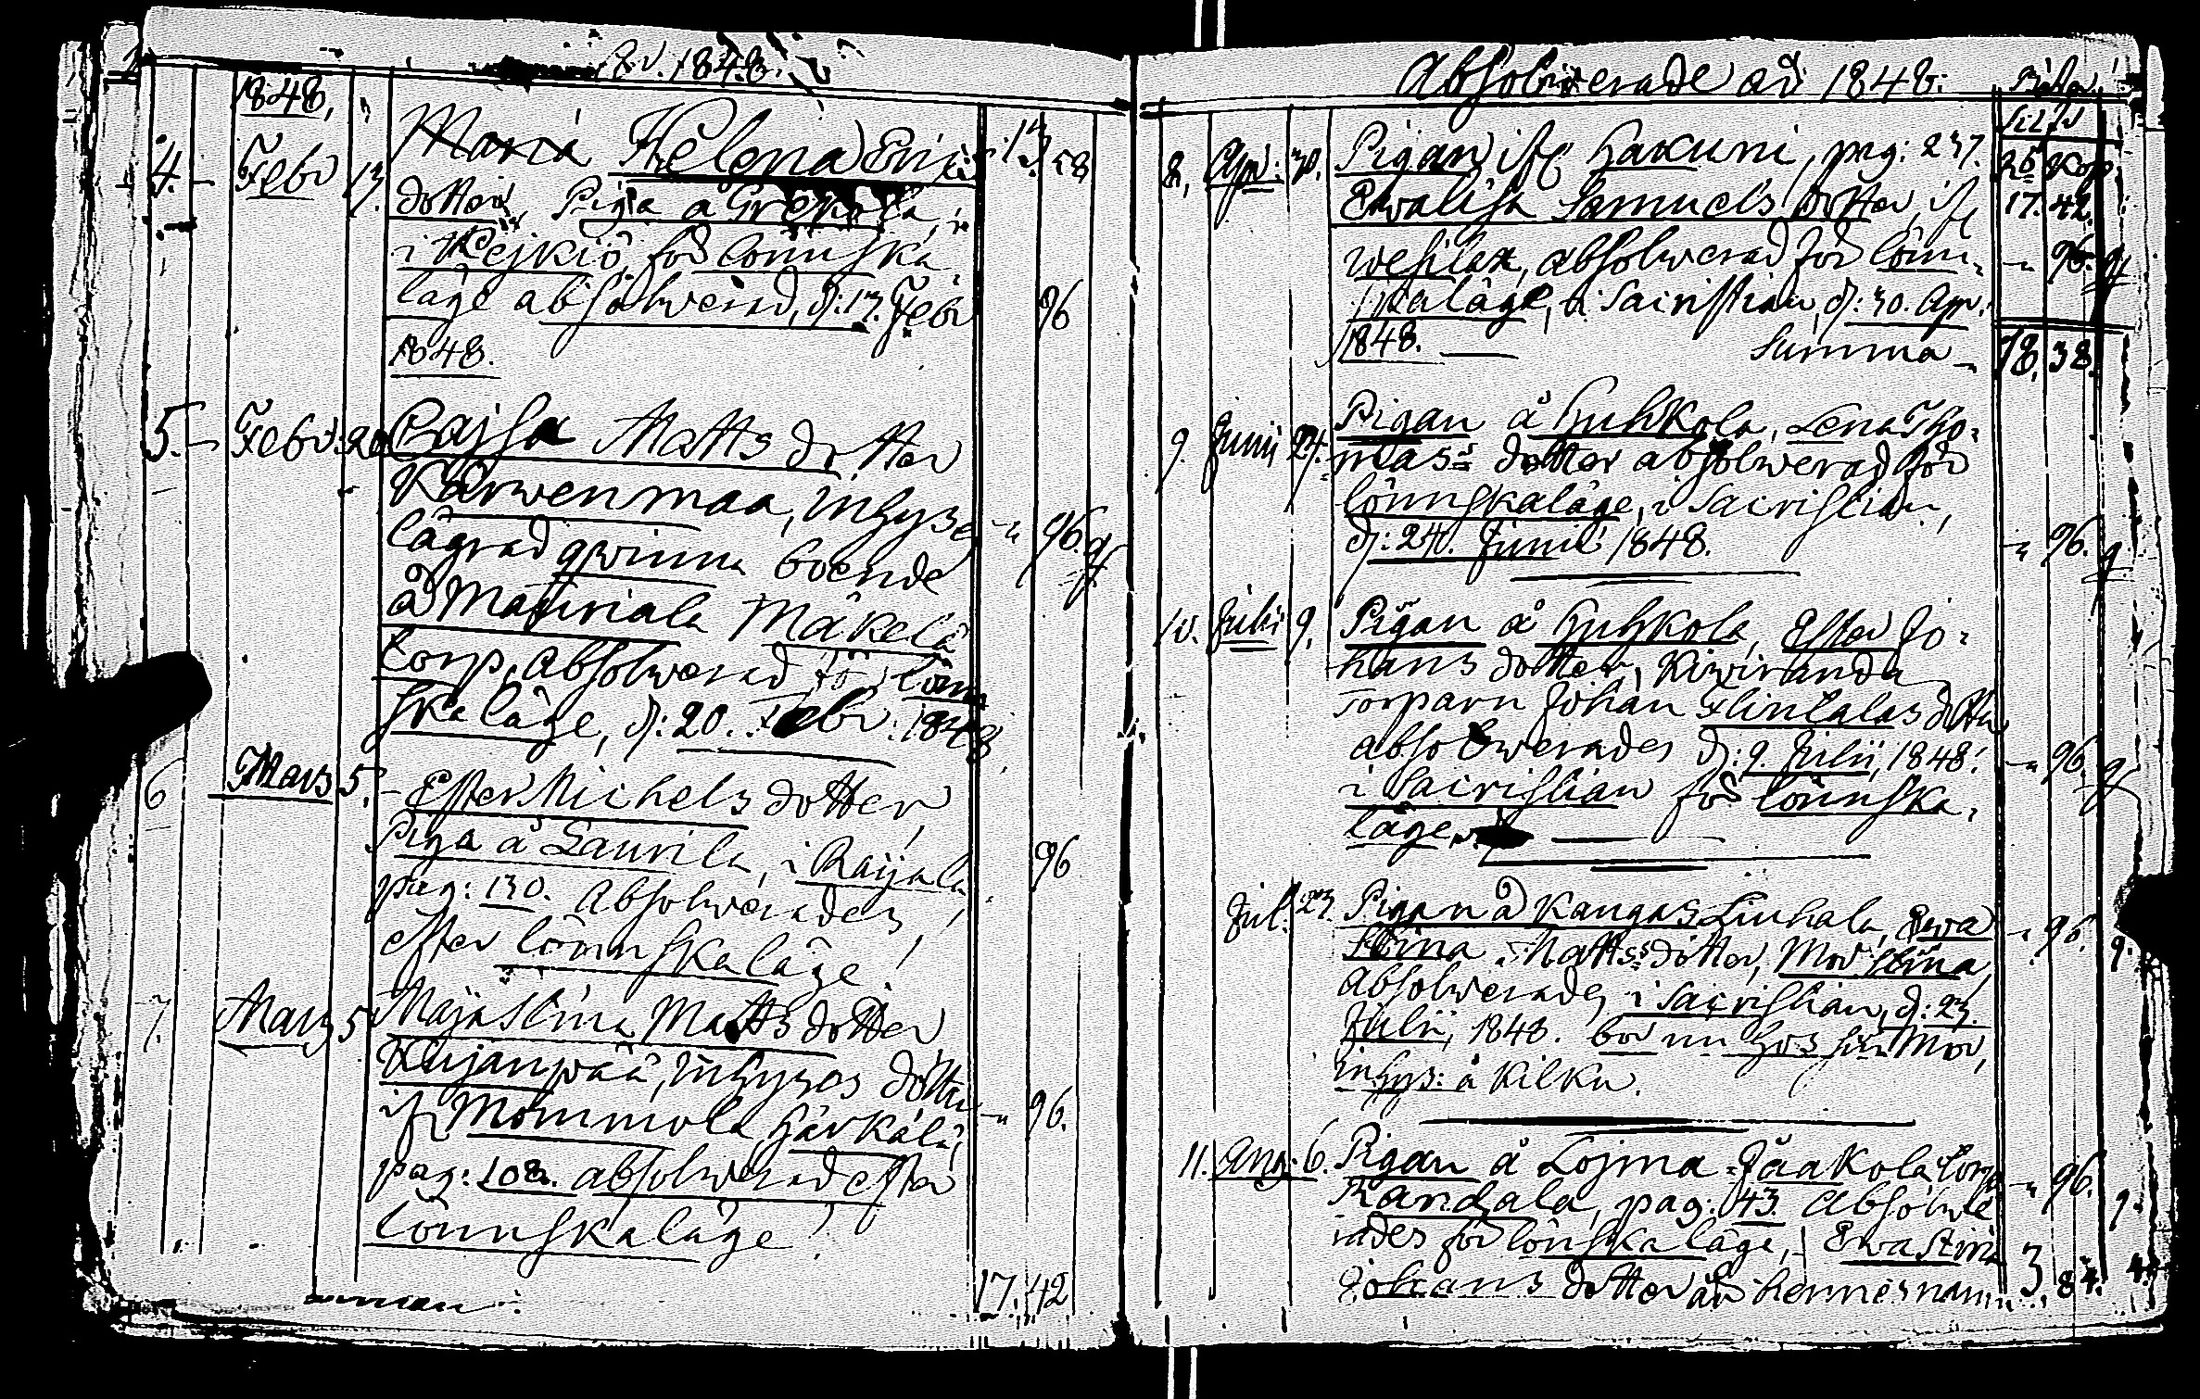 1848.
1848,
4. Febr 13. Maria Helena Erics 13 58
dotter Piga a Grekola,
i Kejkiö, för lönnska
läge absolwerad, d: 13. Febr 96
1848.
5. Febr: 20 Cajsa Matts dotter
Karwenmaa, Inhyses
lägrad qwinna boende " 96.
å Mattiriala Mäkelä
torp, absolwerad för lönn
skaläge, d: 20. Febr. 1848
6 Mars 5. Ester Michels dotter,
Piga å Laurila, i Raijala 96
pag: 130. Absolwerades
efter lönnskaläge!
7. Mars 5 Maja Stina Matts dotter
Kujanpää, Inhyses dotter
if Mommola, Härkälä, " 96.
pag: 108. absolwerad efter
lönnskaläge!
17. 42
Absolwerade år 1848:
8. Apr: 30. Pigan if Hakuni, pag: 237. 26 Kop
Ewalisa Samuels dotter, if 17. 42.
wesilax, absolwerad för lönn " 96.
skaläge, i Sacristian, d: 30. Apr:
1848. Summa 18. 38.
9. Junii 24. Pigan å Huhkola, Lena Tho
mas dotter absolwerad för
lönnskaläge, i Sacristian,
d: 24. Junii 1848. " 96.
10. Julii 9. Pigan å Huhkola, Ester Jo
hans dotter, Kiviranda
Torparn Johan Flintalas dotter
absolwerades d: 9. Julii, 1848. " 96.
i Sacristian för lönnska
läge.
Jul: 23. Pigan å Kangas Liuhala, Ewa " 96.
Stina Matts dotter, Mor Stina,
absolwerades i Sacristian, d: 23.
Julii, 1848. bor nu hos sin Mor,
inhys: å Kilku.
11. Aug: 6. Pigan å Lojma Jaakola torp " 96.
Randala, pag: 43. Absolwe
rades för lönskaläge, Ewa Stina
Johans dotter är hennes namn. 3. 84.